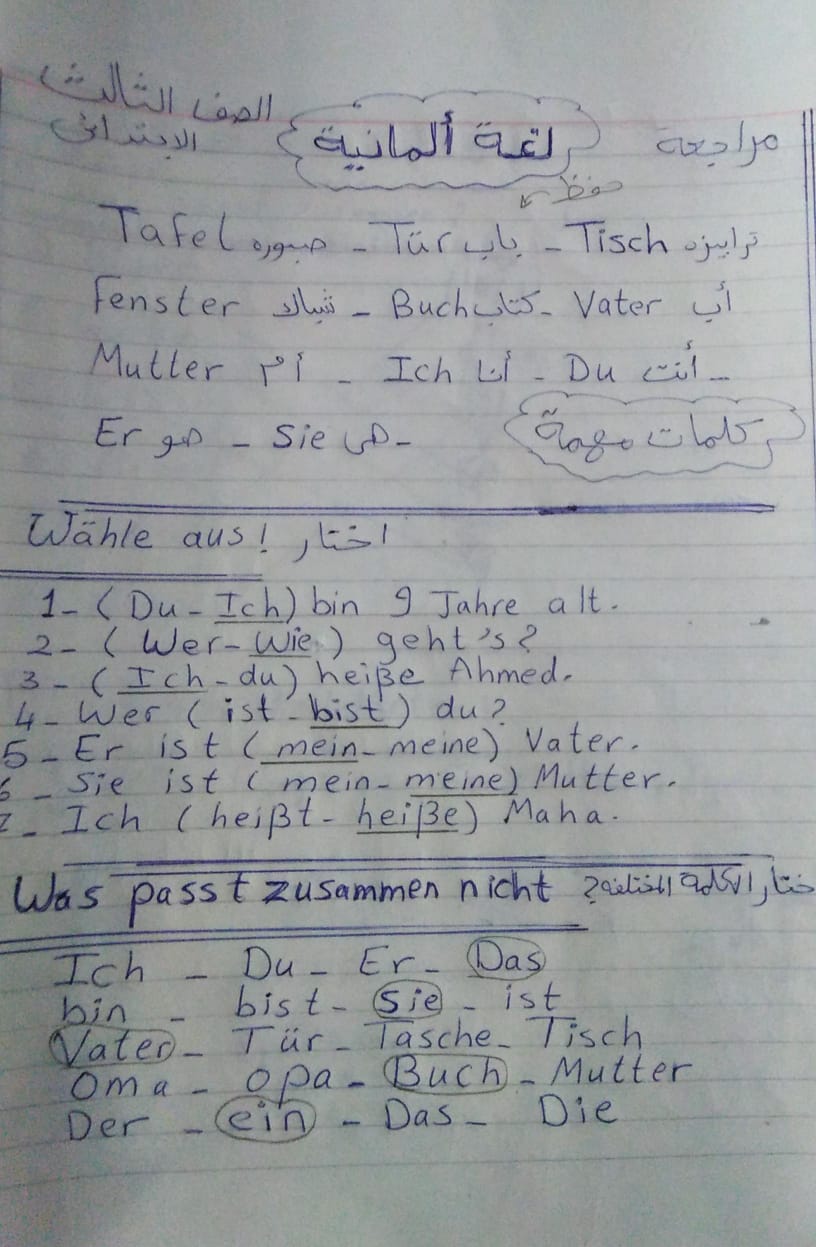 مراجعة لغة ألمانية الصف الثالث
الابتدائى
حفظ
Tafel صبوره - Tür باب - Tisch ترابيزه
Fenster شباك - Buch كتاب - Vater أب
Mutter أم - Ich أنا - Du أنت -
Er هو - Sie هى -
كلمات مهمة
Wähle aus! اختار
1- (Du - Ich) bin 9 Jahre alt.
2- (Wer - wie) geht's?
3- (Ich - du) heiße Ahmed.
4- Wer (ist - bist) du?
5- Er ist (mein - meine) Vater.
6- Sie ist (mein - meine) Mutter.
7- Ich (heißt - heiße) Maha.
Was passt zusammen nicht ختار الكلمة المختلفة?
Ich - Du - Er - Das
bin - bist - Sie - ist
Vater - Tür - Tasche - Tisch
Oma - Opa - Buch - Mutter
Der - ein - Das - Die